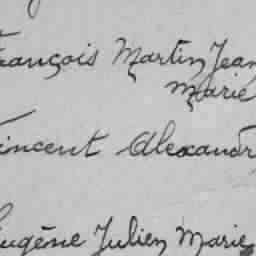 François Martin Jean
Marie
Vincent Alexandr
Eugène Julien Marie